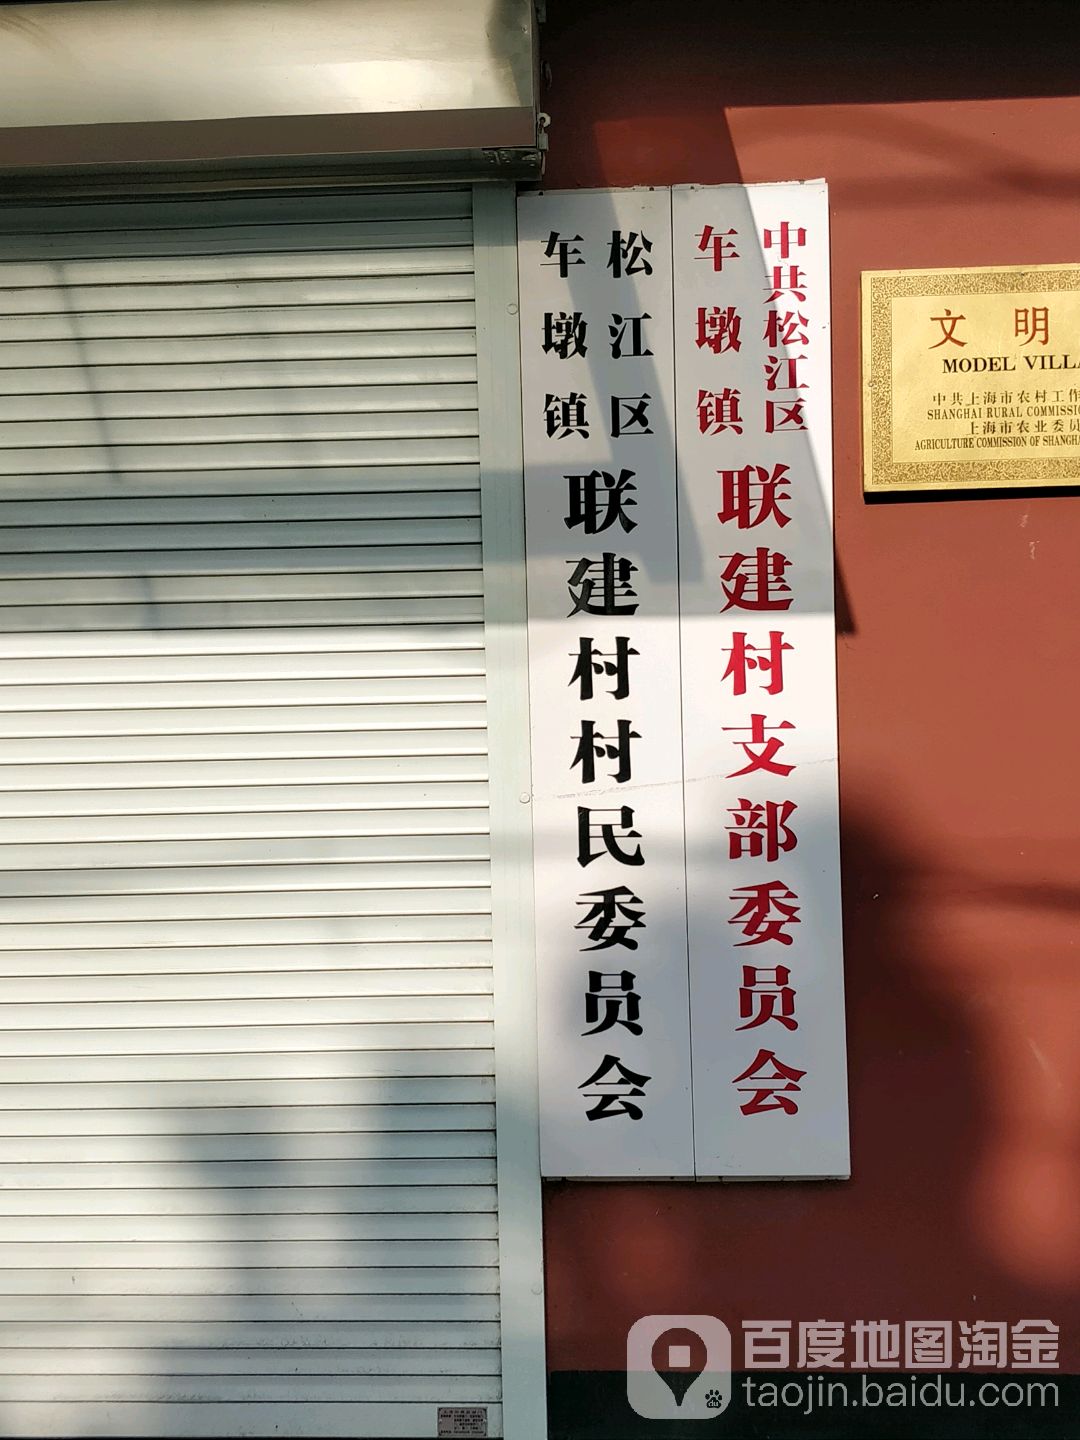 中共松江区
车墩镇
联建村支部委员会
松江区
车墩镇
联建村村民委员会
文 明
MODEL VILLA
中共上海市农村工作
SHANGHAI RURAL COMMISSIO
上海市农业委员
AGRICULTURE COMMISSION OF SHANGHA
百度地图淘金
taojin.baidu.com